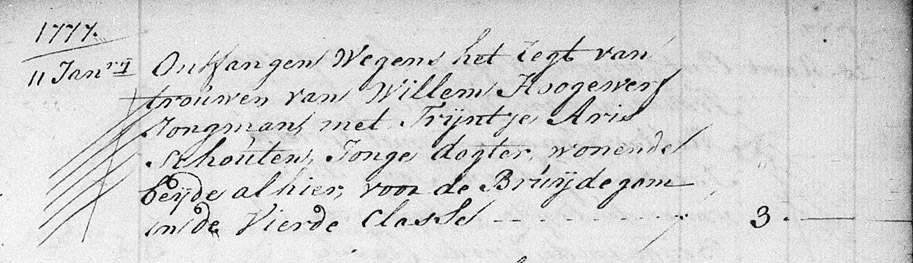 1777.
11 Janrij Ontfangen Wegens het Regt van
trouwen van Willem Hoogewerf
Jongman, met Trijntje Aris
Schouten, Jonge dogter, wonende
beÿde alhier, voor de Bruijdegom
in de Vierde Classe - - - - - 3. -